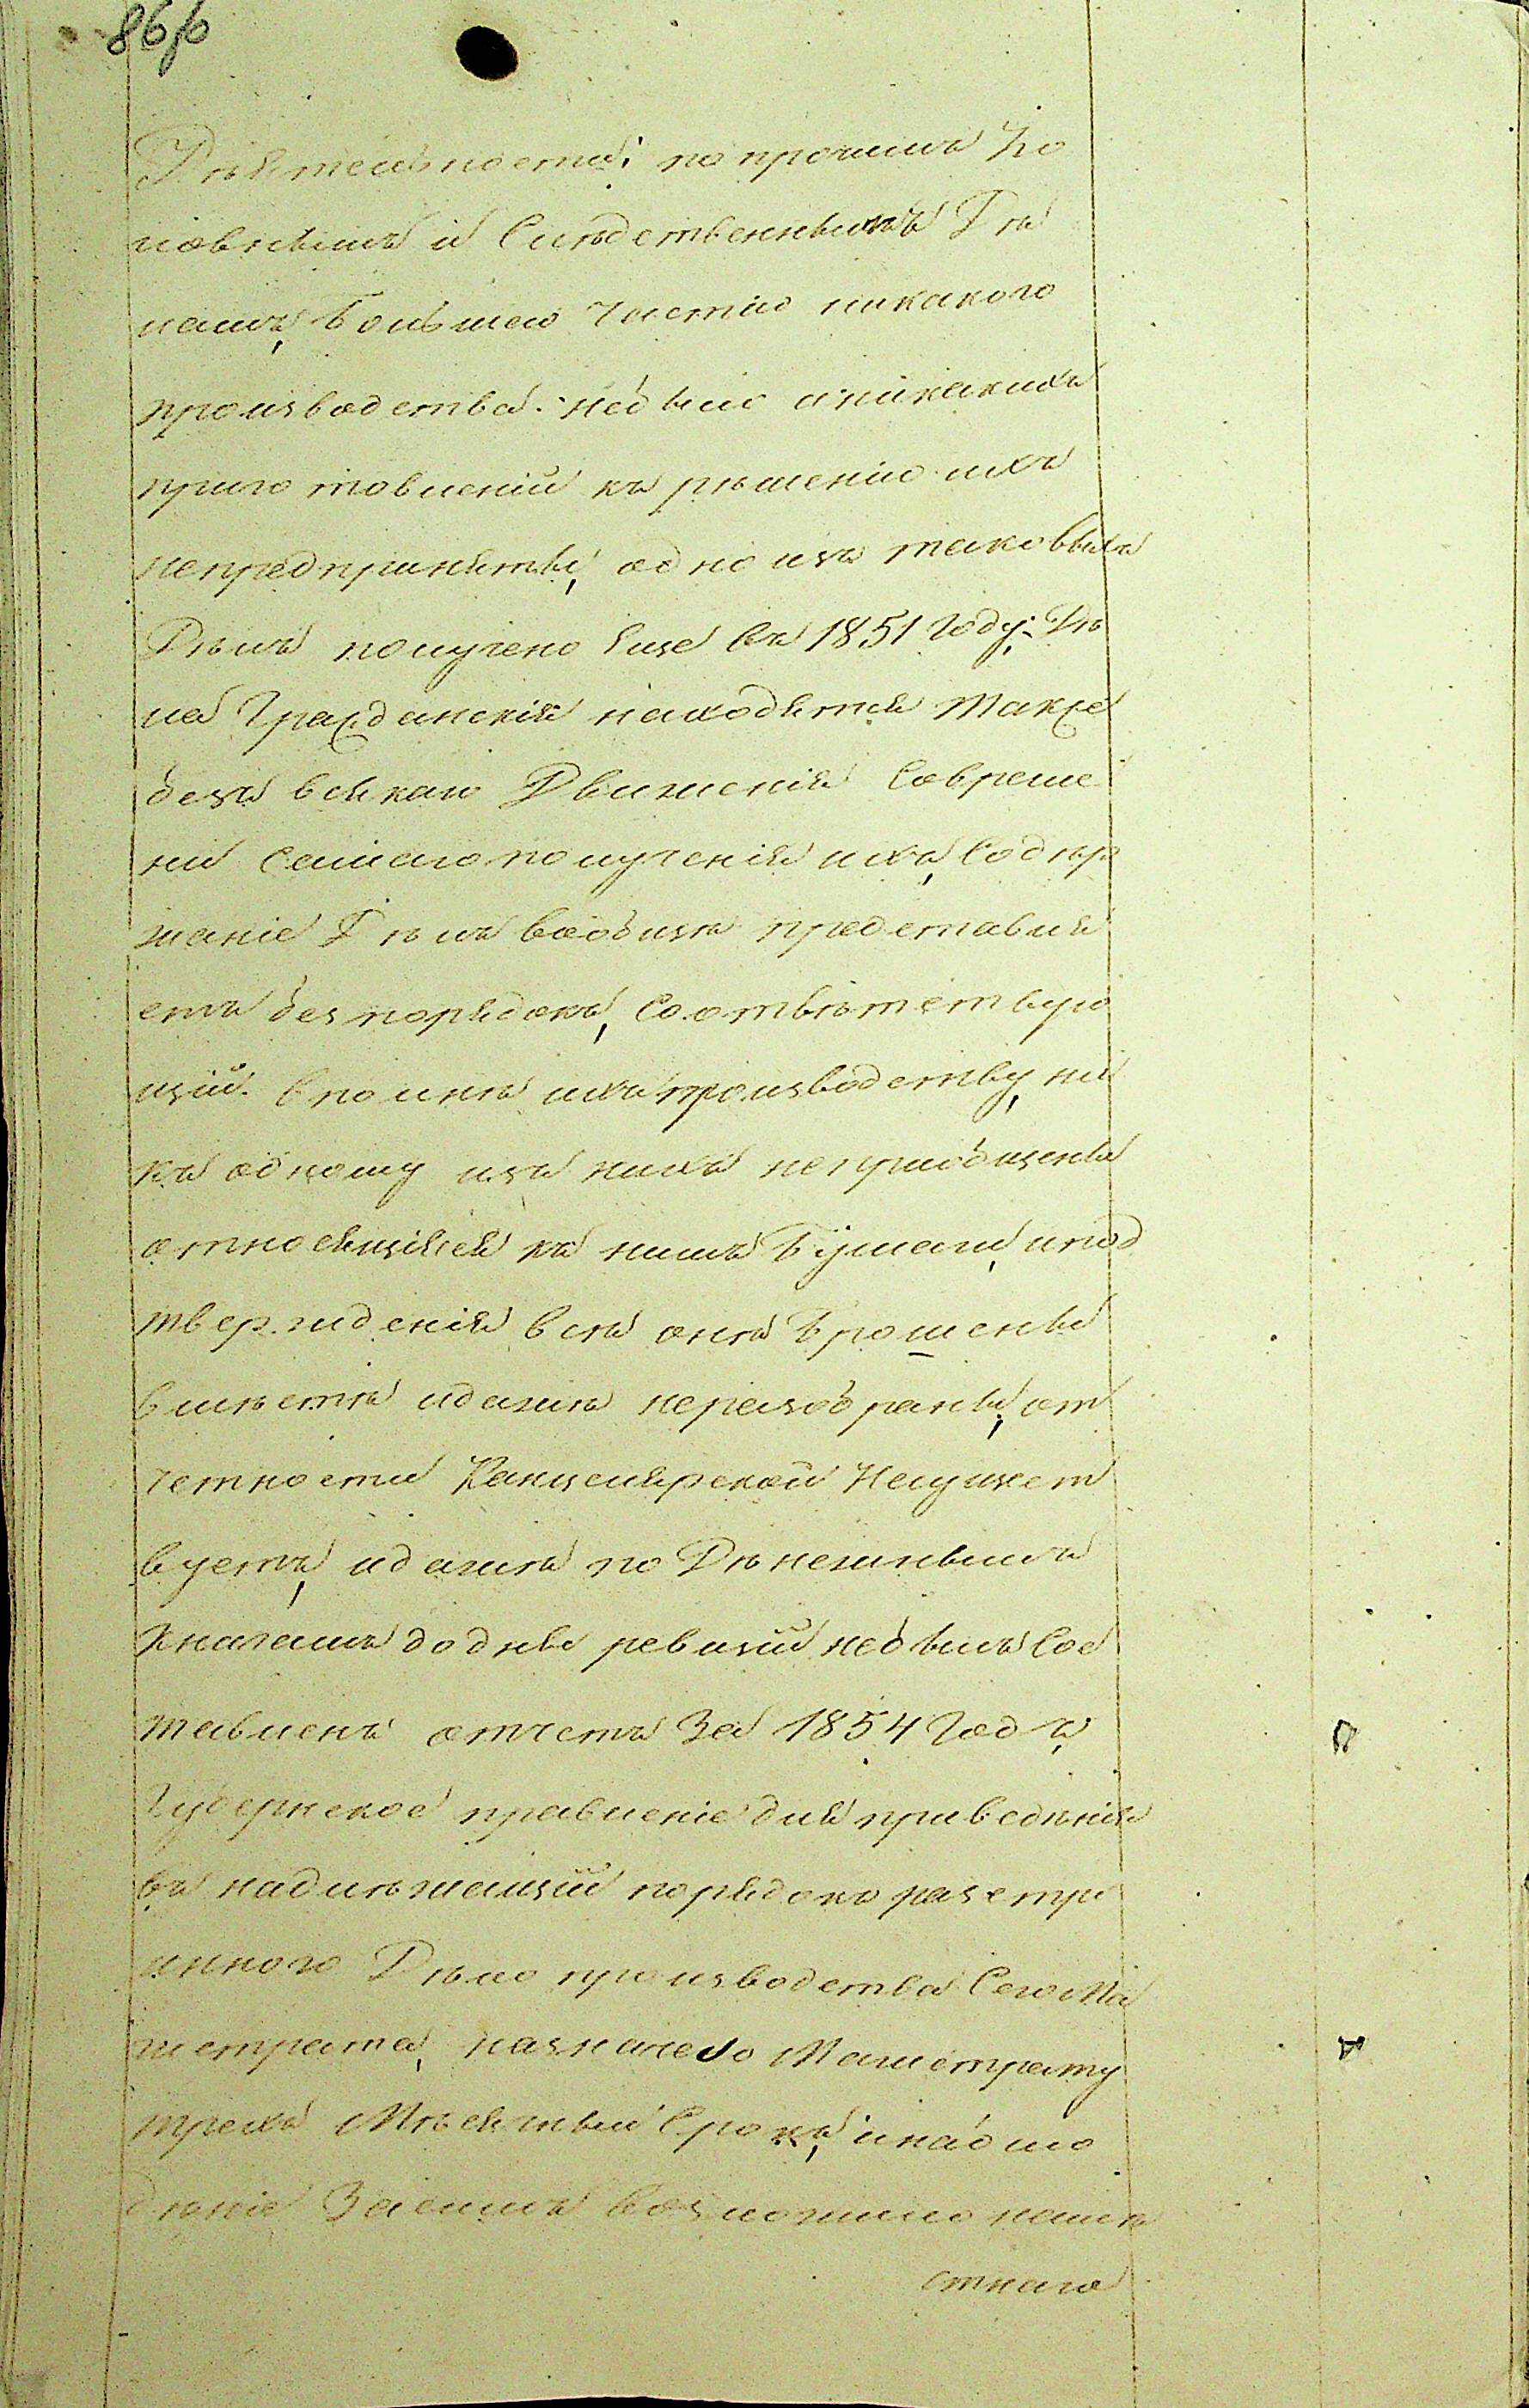 86/о
Дѣятельности; по прочимъ Уго
ловнымъ и Слѣдственнымъ Дѣ
ламъ, большею частію никакого
производства небыло и никакихъ
приготовленій къ рѣшенію ихъ
непредпринято, одно изъ таковыхъ
Дѣлъ получено Еще въ 1851 Году; Дѣ
ла Гражданскія находятся также
безъ всякаго Движенія Современи
ни самаго полученія ихъ, Содѣр
жаніе Дѣлъ вообщѣ представля
етъ безпорядокъ, Соотвѣтствую
щій вполнѣ ихъ производству, ни
къ одному изъ нихъ непріобщены
относящіяся къ нимъ бумаги, и под
твержденія всѣ онѣ брошены
вмѣстѣ и дажѣ неразобраны, от
четности Канцелярской Несущест
вуетъ, и дажѣ по Дѣнежнымъ
Книгамъ до дня ревизіи небылъ Сос
тавленъ отчетъ За 1854 Годъ,
Губернское правленіе для привѣдѣнія
въ надлѣжащій порядокъ разстро
иннаго Дѣлопроизводства Сего Ма
гистрата, назначело Магистрату
трехъ Мѣсячный Срокъ, и наблю
дѣніе За симъ возложило на мѣ
стнаго